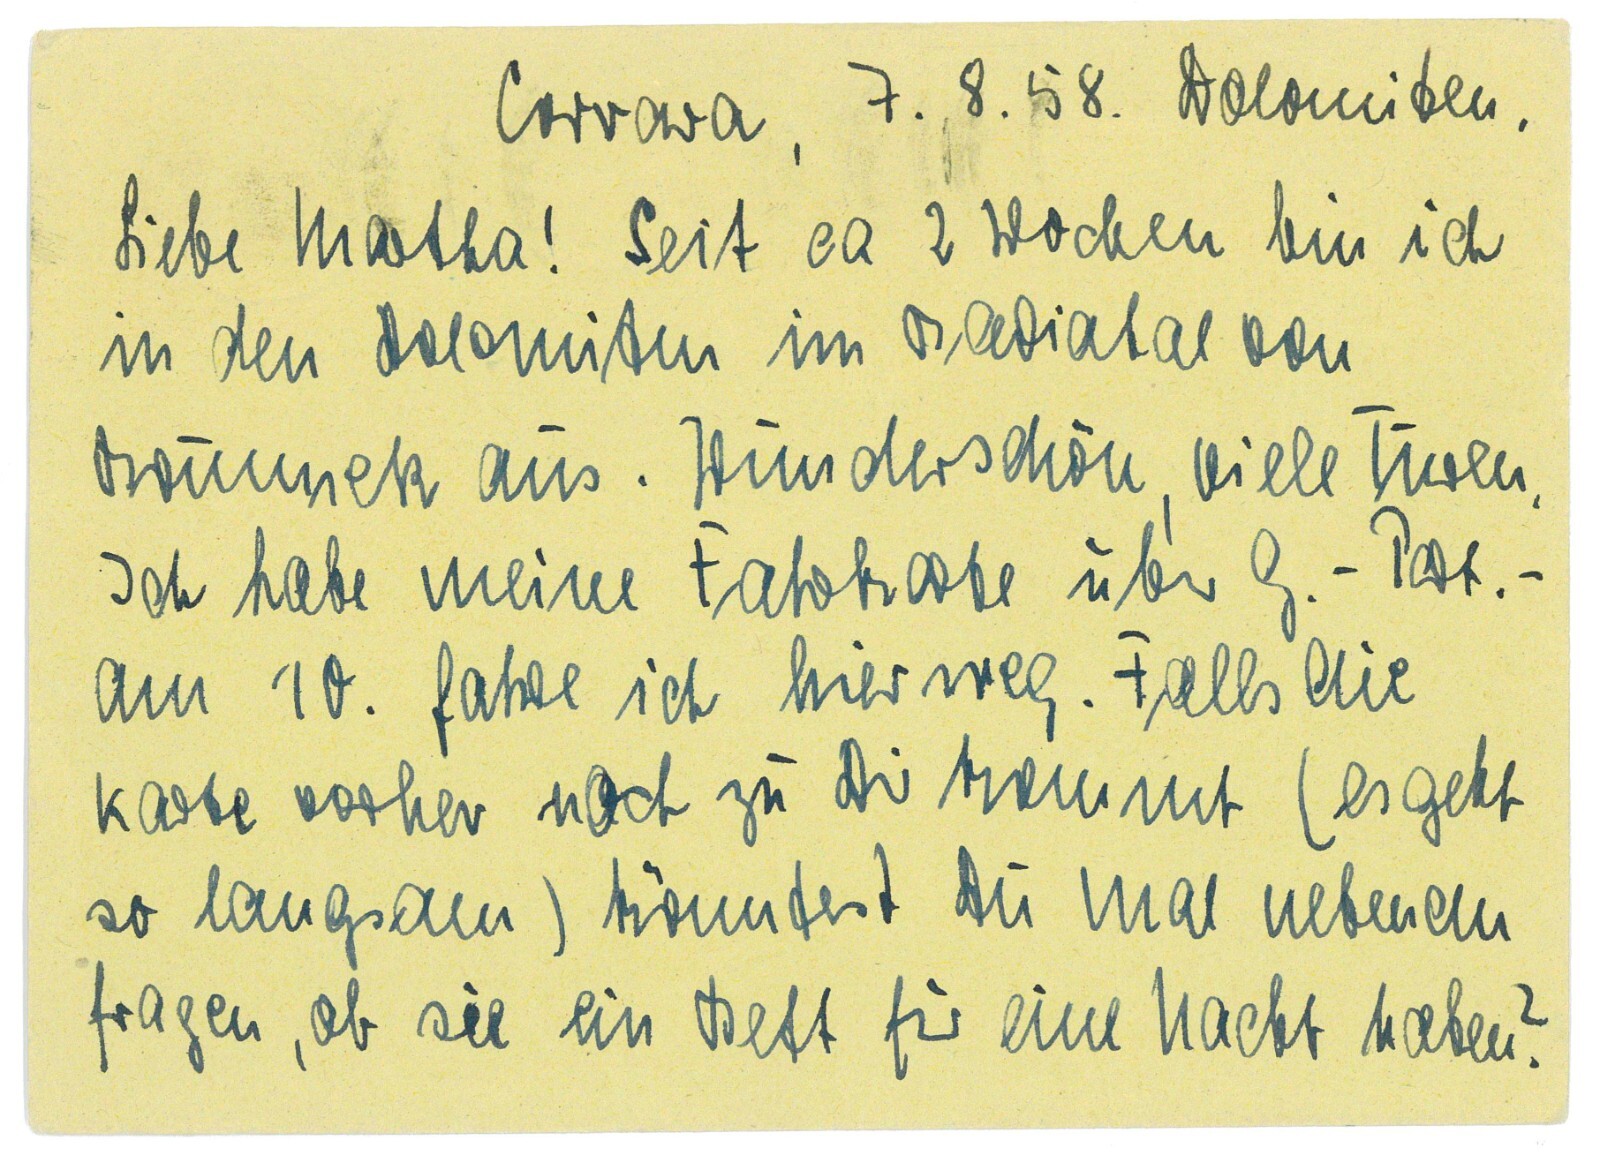 Corvara, 7. 8. 58. Dolomiten.
Liebe Martha! Seit ca 2 Wochen bin ich
in den Dolomiten im Badiatal von
Brunneck aus. Wunderschön, viele Turen.
Ich habe meine Fahrkarte über G.-Part.-
am 10. fahre ich hier weg. Falls die
Karte vorher noch zu Dir kommt (es geht
so langsam) könntest Du mal nebenan
fragen, ob sie ein Bett für eine Nacht haben?